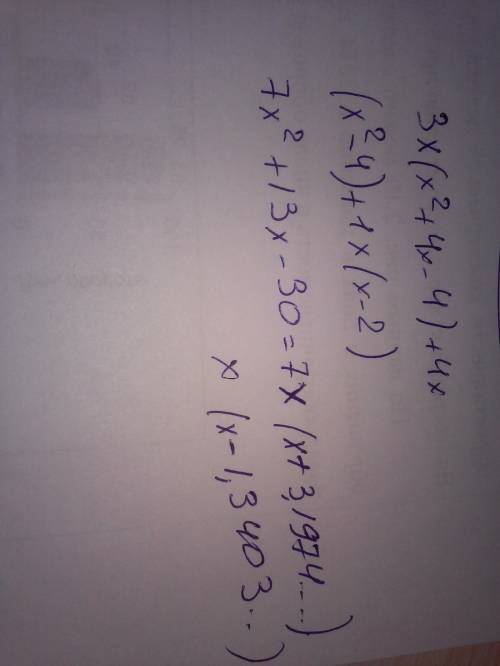 3x(x²+4x-4)+4x
(x²-4)+1x(x-2)
7x²+13x-30=7x (x+3,1974....)
x (x-1,3403...)